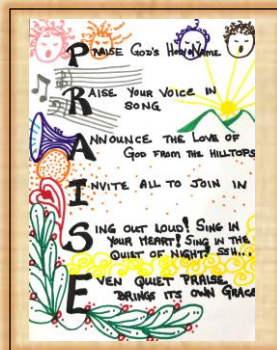 PRAISE GOD'S HOLY NAME
RAISE YOUR VOICE IN
SONG
ANNOUNCE THE LOVE OF
GOD FROM THE HILLTOPS
INVITE ALL TO JOIN IN
SING OUT LOUD! SING IN
YOUR HEART! SING IN THE
QUIET OF NIGHT! SSH...
EVEN QUIET PRAISE,
BRINGS ITS OWN GRACE